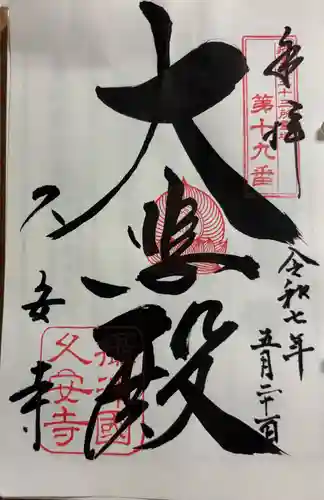 奉拝
第十九番
令和七年
五月二十一日
大悲殿
久安寺
摂津國
久安寺